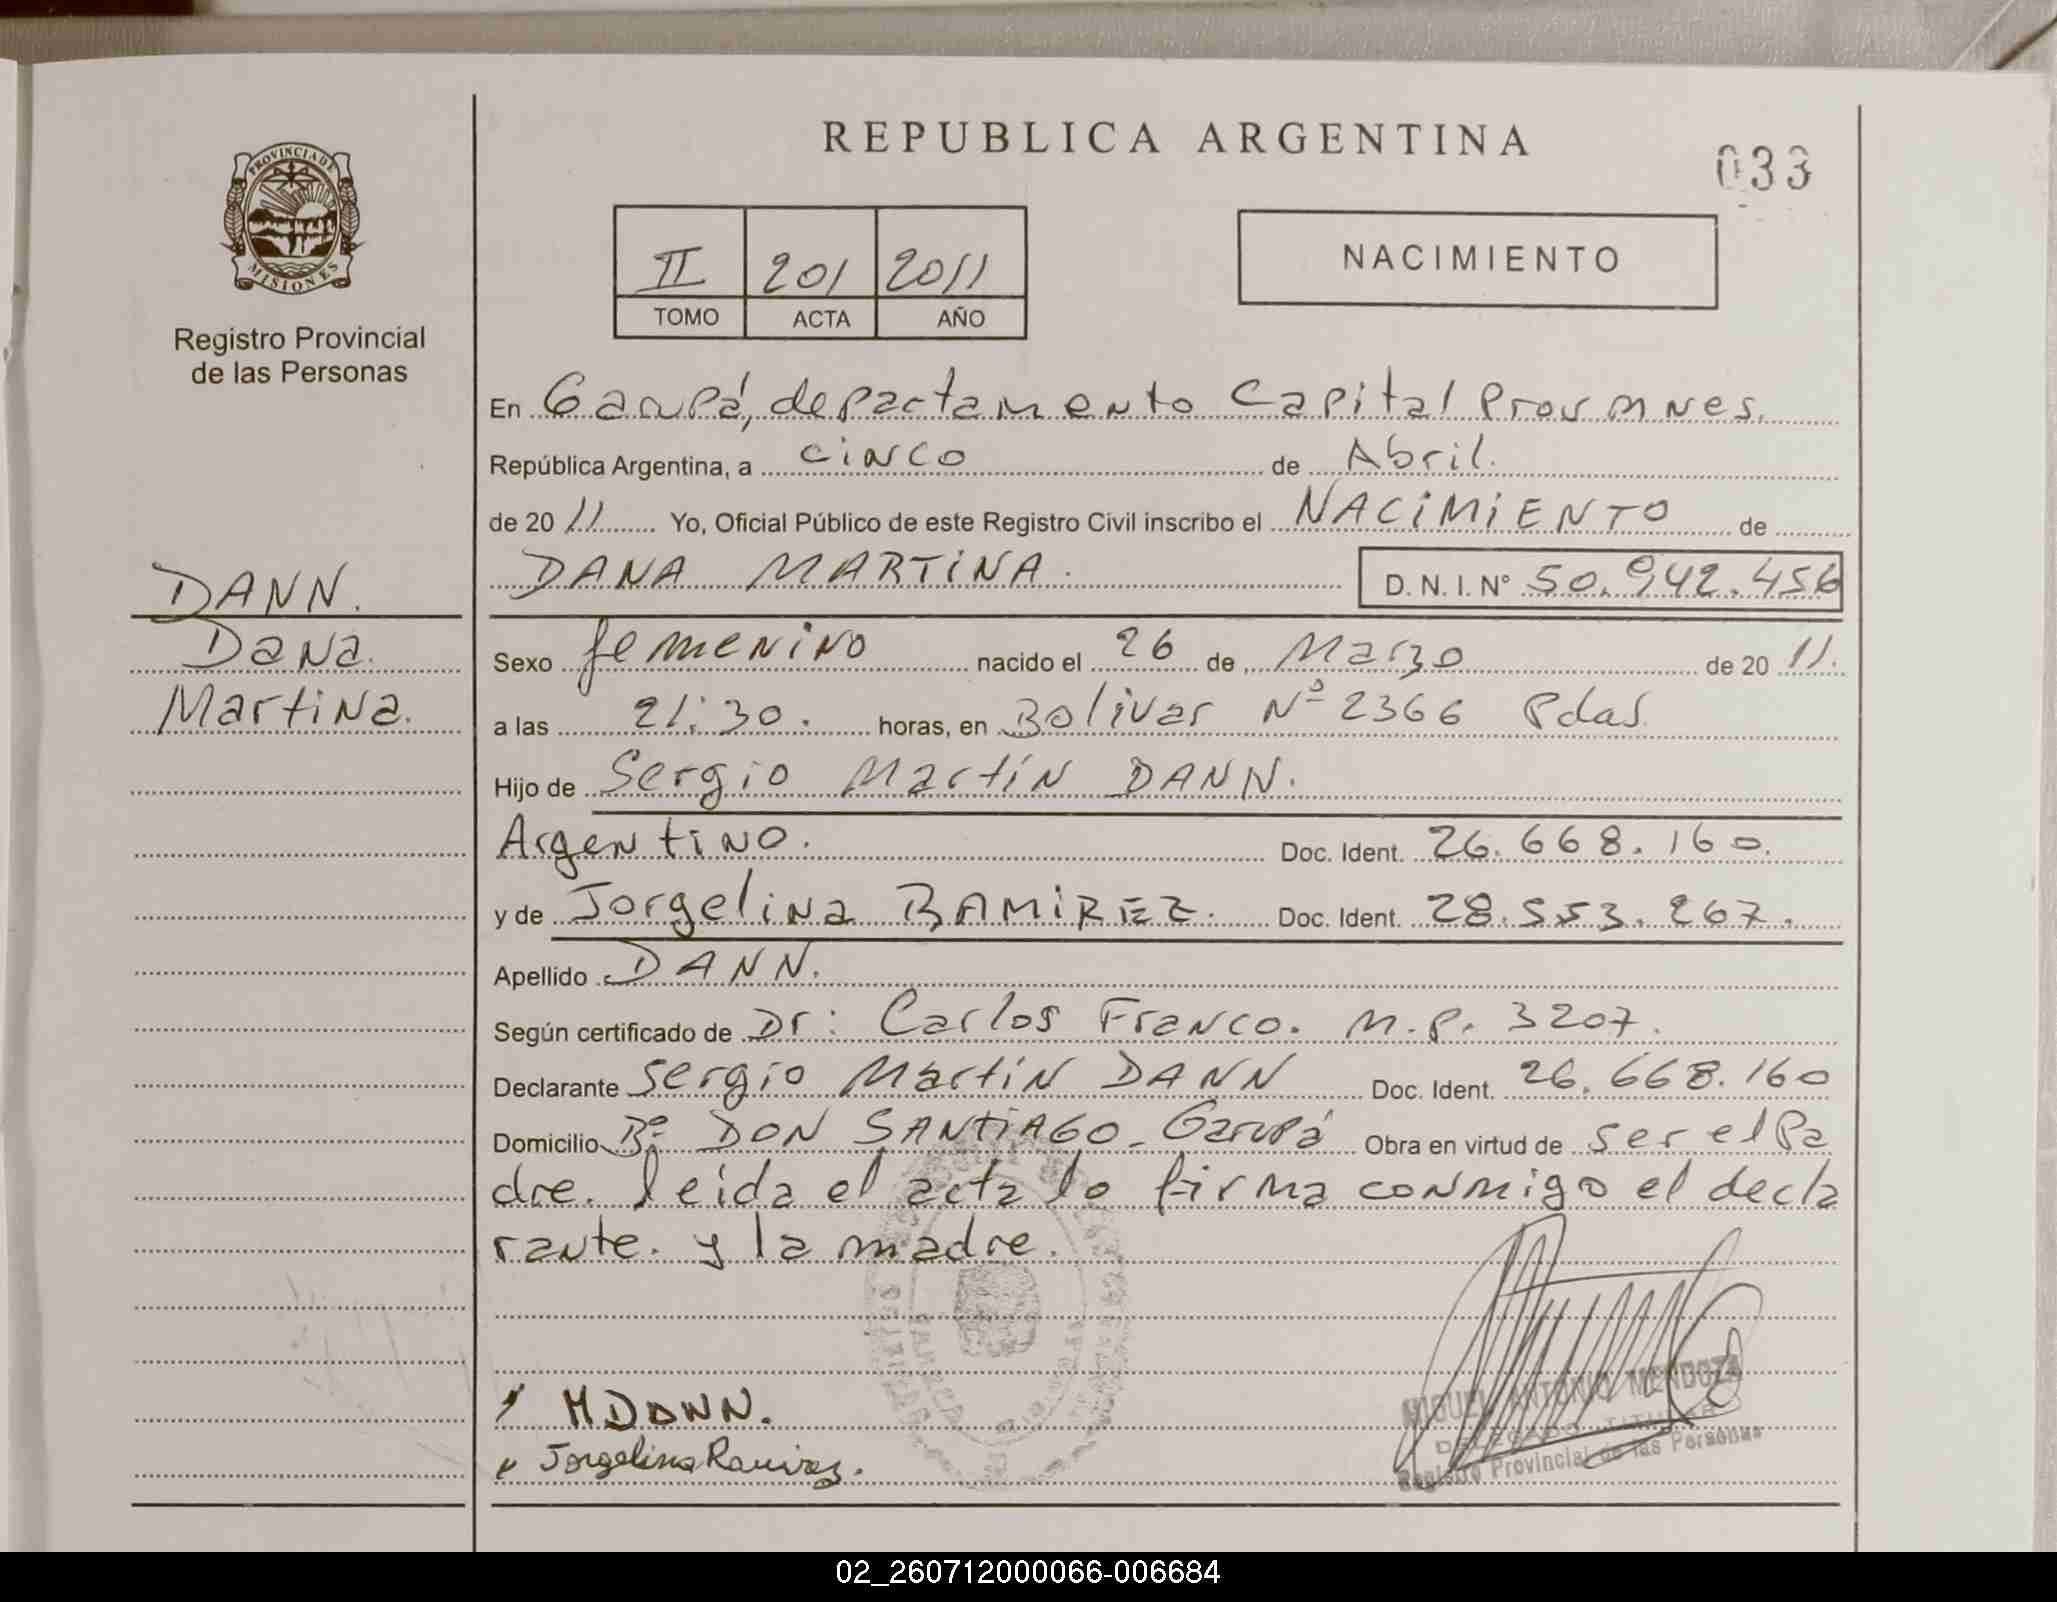 REPUBLICA ARGENTINA
033
PROVINCIA DE
MISIONES
Registro Provincial
de las Personas
II 201 2011
TOMO ACTA AÑO
NACIMIENTO
En Garupá, departamento Capital Prov Mnes.
República Argentina, a cinco de Abril.
de 20 11 Yo, Oficial Público de este Registro Civil inscribo el NACIMIENTO de
DANA MARTINA. D. N. I. Nº 50.942.456
DANN.
Dana
Martina.
Sexo femenino nacido el 26 de Marzo de 20 11.
a las 21:30. horas, en Bolivar Nº 2366 Pdas.
Hijo de Sergio Martín DANN.
Argentino. Doc. Ident. 26.668.160.
y de Jorgelina RAMIREZ. Doc. Ident. 28.553.267.
Apellido DANN.
Según certificado de Dr: Carlos Franco. M.P. 3207.
Declarante Sergio Martín DANN Doc. Ident. 26.668.160
Domicilio Bº DON SANTIAGO - Garupá Obra en virtud de ser el Pa
dre. leida el acta lo firma conmigo el decla
rante. y la madre.
M DANN.
Jorgelina Ramirez.
MIGUEL ANTONIO MENDOZA
DELEGADO TITULAR
Registro Provincial de las Personas
02_260712000066-006684